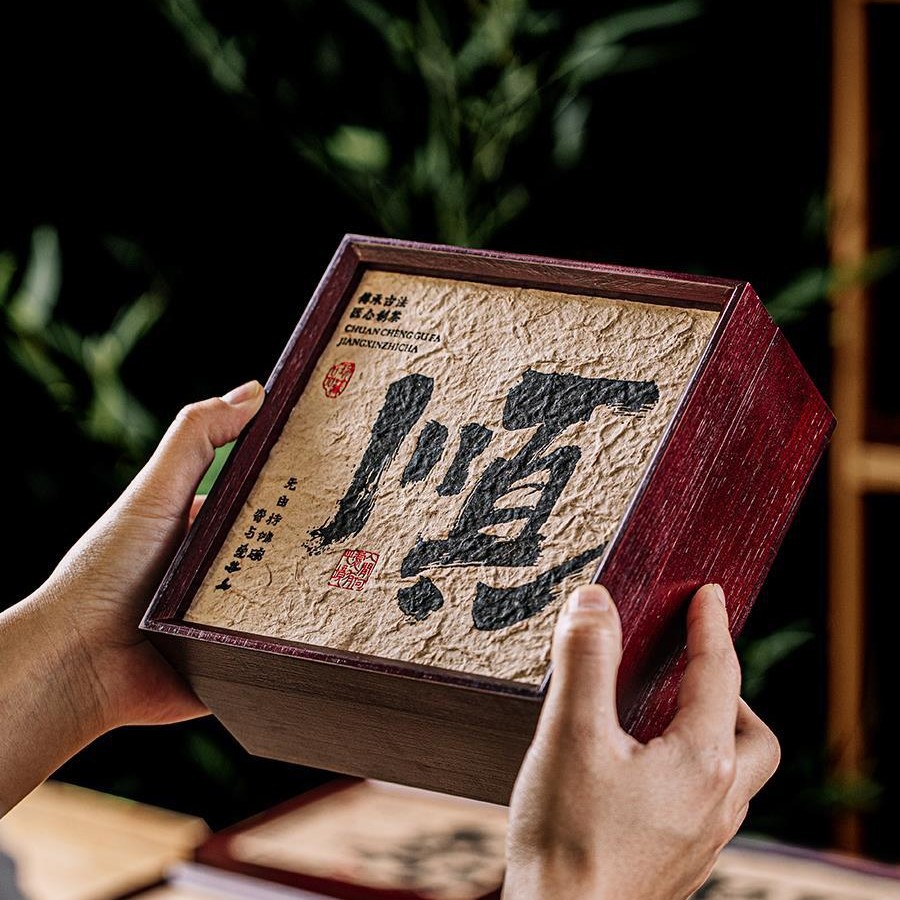 傳承古法
匠心制茶
CHUAN CHENG GU FA
JIANGXINZHICHA
順
无由持碗
寄与爱茶人